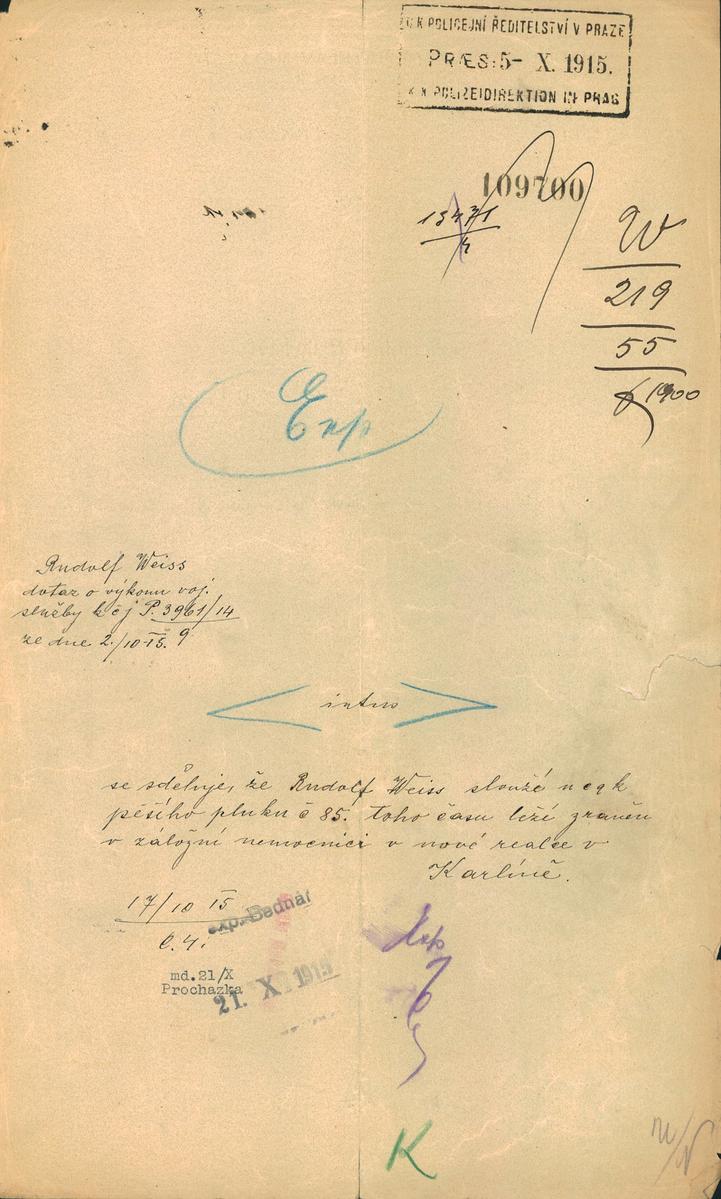 C.K POLICEJNÍ ŘEDITELSTVÍ V PRAZE
PRÆS: 5- X. 1915.
K.K POLIZEIDIREKTION IN PRAG
109700
W
219
55
1900
Exp
Rudolf Weiss
dotaz o výkonu voj.
služby k čj P. 3961/14
ze dne 2./10 15. 9
intus
se sděluje, že Rudolf Weiss slouží u c a k
pěšího pluku č 85. toho času leží zraněn
v záložní nemocnici v nové realce v
Karlíně.
17/10 15
exp. Bednář
md.21/X
Prochazka
21. X. 1915
K